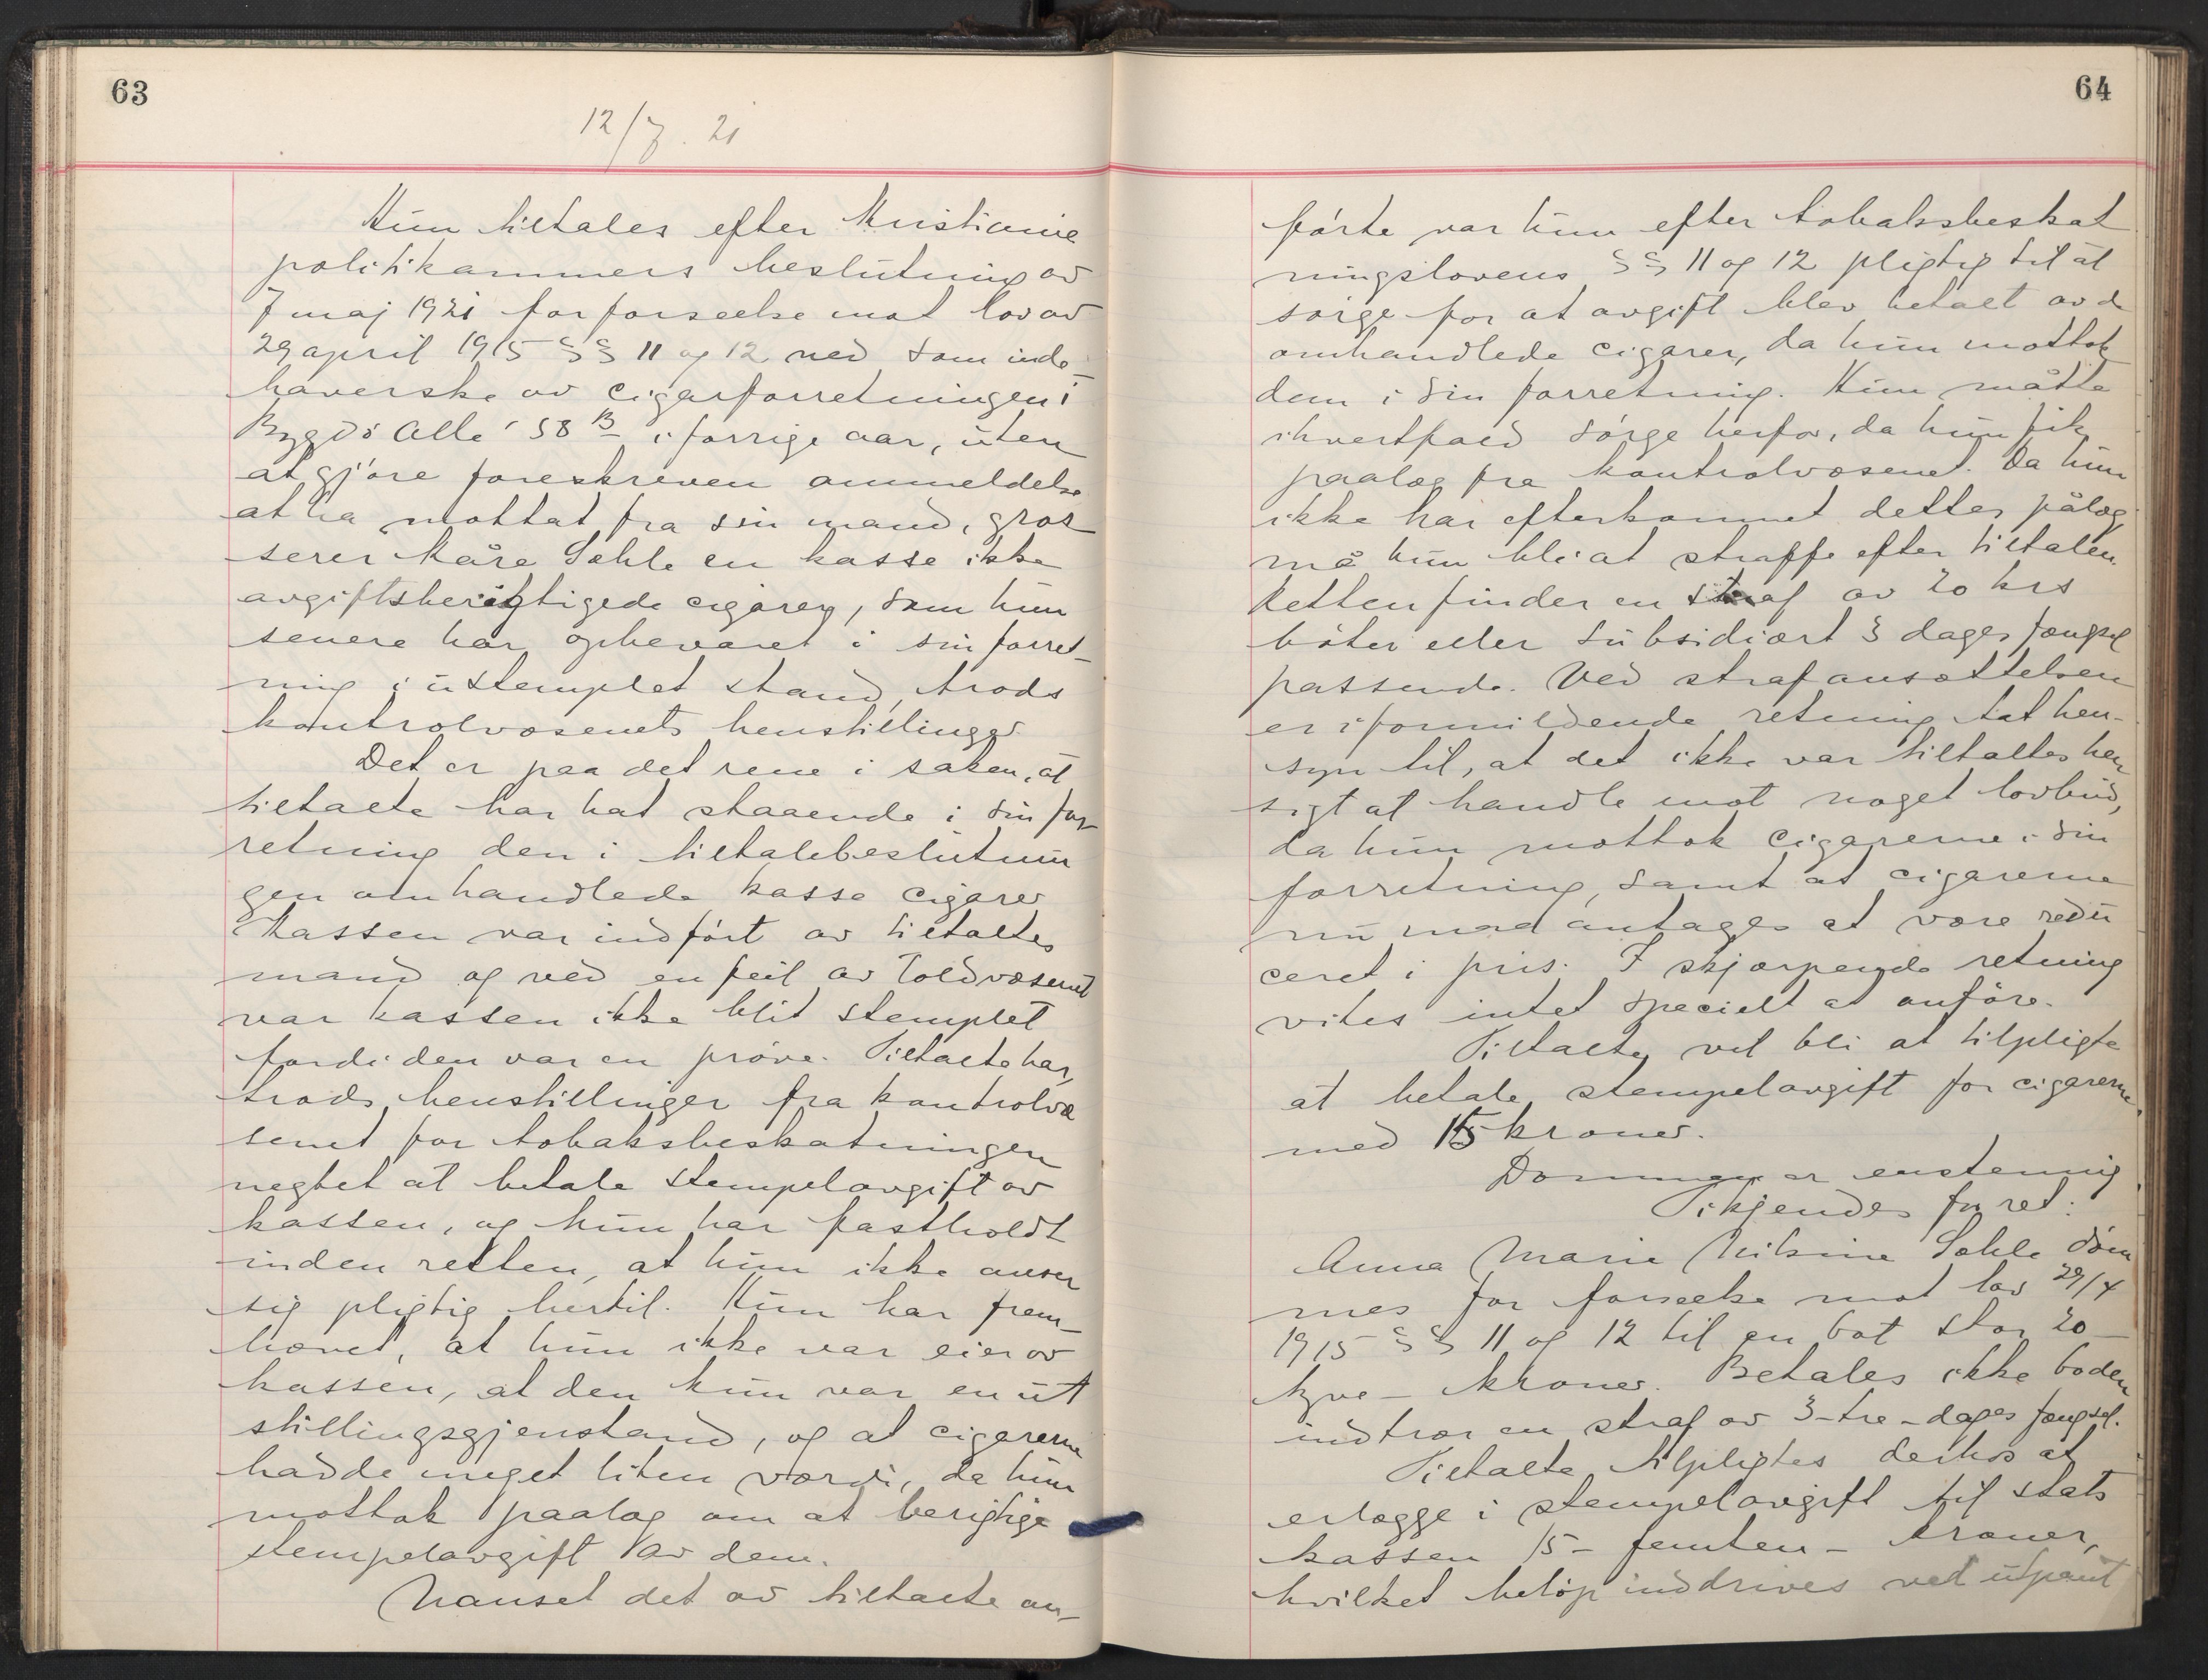 63
12/7. 21
Hun tiltales efter Kristiania
politikammers beslutning av
7 maj 1921 for forseelse mot lov av
29 april 1915 §§ 11 og 12 ved som inde-
haverske av cigarforretningen i
Bygdø Allé 58 B i forrige aar, uten
at gjøre foreskreven anmeldelse
at ha mottat fra sin mand, gros
serer Kåre Sehle en kasse ikke
avgiftsberigtigede cigarer, som hun
senere har opbevaret i sin forret-
ning i ustemplet stand, trods
kontrolvæsenets henstillinger
Det er paa det rene i saken, at
tiltalte har hat staaende i sin for-
retning den i tiltalebeslutnin
gen omhandlede kasse cigarer
Kassen var indført av tiltaltes
mand og ved en feil av toldvæsenet
var kassen ikke blit stemplet
fordi den var en prøve. Tiltalte har,
trods henstillinger fra kontrolvæ
senet for tobaksbeskatningen
negtet at betale stempelavgift av
kassen, og hun har fastholdt
inden retten, at hun ikke anser
sig pligtig hertil. Hun har frem-
hævet, at hun ikke var eier av
kassen, at den kun var en ut
stillingsgjenstand, og at cigarerne
hadde meget liten værdi, da hun
mottok paalæg om at berigtige
stempelavgift av dem.
Uanset det av tiltalte an-
64
førte var hun efter tobaksbeskat
ningslovens §§ 11 og 12 pligtig til at
sørge for at avgift blev betalt av de
omhandlede cigarer, da hun mottok
dem i sin forretning. Hun måtte
ihvertfald sørge herfor, da hun fik
paalæg fra kontrolvæsenet. Da hun
ikke har efterkommet dettes pålæg,
må hun bli at straffe efter tiltalen.
Retten finder en straf av 20 krs
bøter eller subsidiært 3 dages fængsel
passende. Ved strafansættelsen
er i formildende retning tat hen-
syn til, at det ikke var tiltaltes hen
sigt at handle mot noget lovbud,
da hun mottok cigarerne i sin
forretning, samt at cigarerne
nu maa antages at være redu
ceret i pris. I skjærpende retning
vites intet specielt at anføre.
Tiltalte vil bli at tilpligte
at betale stempelavgift for cigarerne
med 15 kroner.
Dommen er enstemmig
Ti kjendes for ret:
Anna Marie Nilsine Sehle døm
mes for forseelse mot lov 29/4
1915 §§ 11 og 12 til en bot stor 20-
tyve - kroner. Betales ikke boden
indtrær en straf av 3-tre-dages fængsel.
Tiltalte tilpligtes derhos at
erlægge i stempelavgift til stats
kassen 15 - femten - kroner,
hvilket beløp inddrives ved utpant